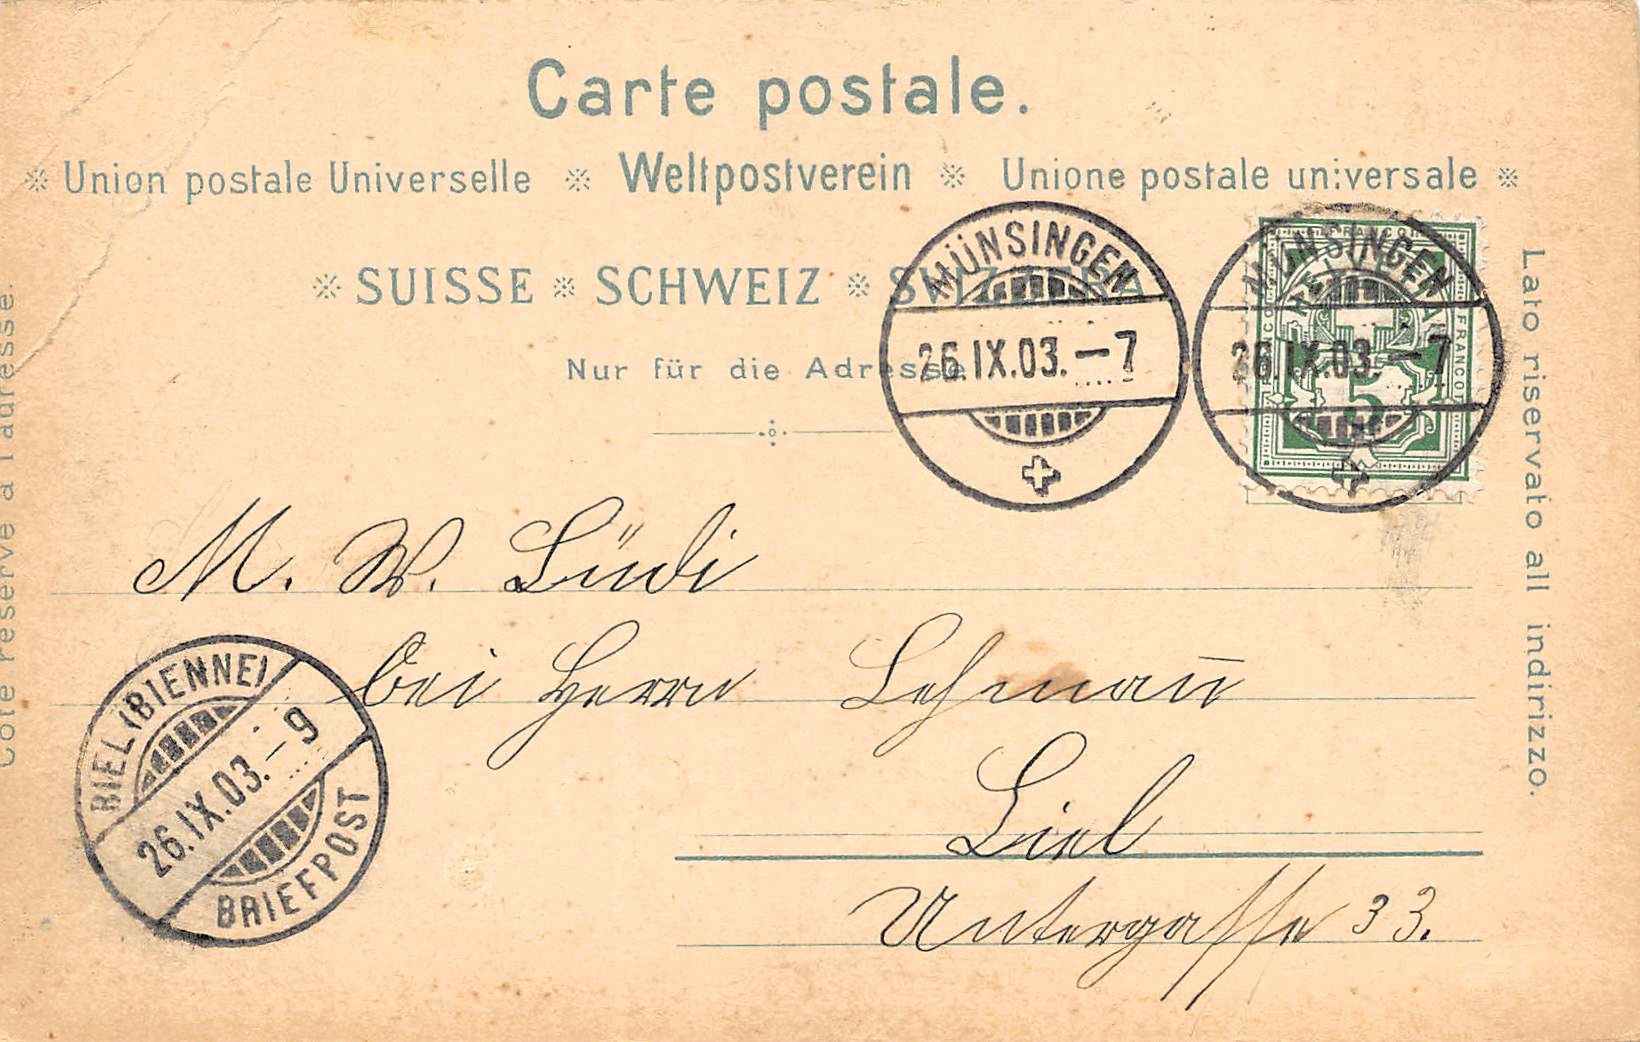 Carte postale.
※ Union postale Universelle ※ Weltpostverein ※ Unione postale universale ※
※ SUISSE ※ SCHWEIZ ※ SVIZZERA
Nur für die Adresse
MÜNSINGEN
26.IX.03.–7
MÜNSINGEN
26.IX.03.–7
FRANCO
HELVETIA
FRANCO
5
Lato riservato all indirizzo.
Côté réservé à l'adresse.
M. W. Lüdi
bei Herrn Lehman̅
Biel
Untergasse 33.
BIEL (BIENNE)
26.IX.03.–9
BRIEFPOST